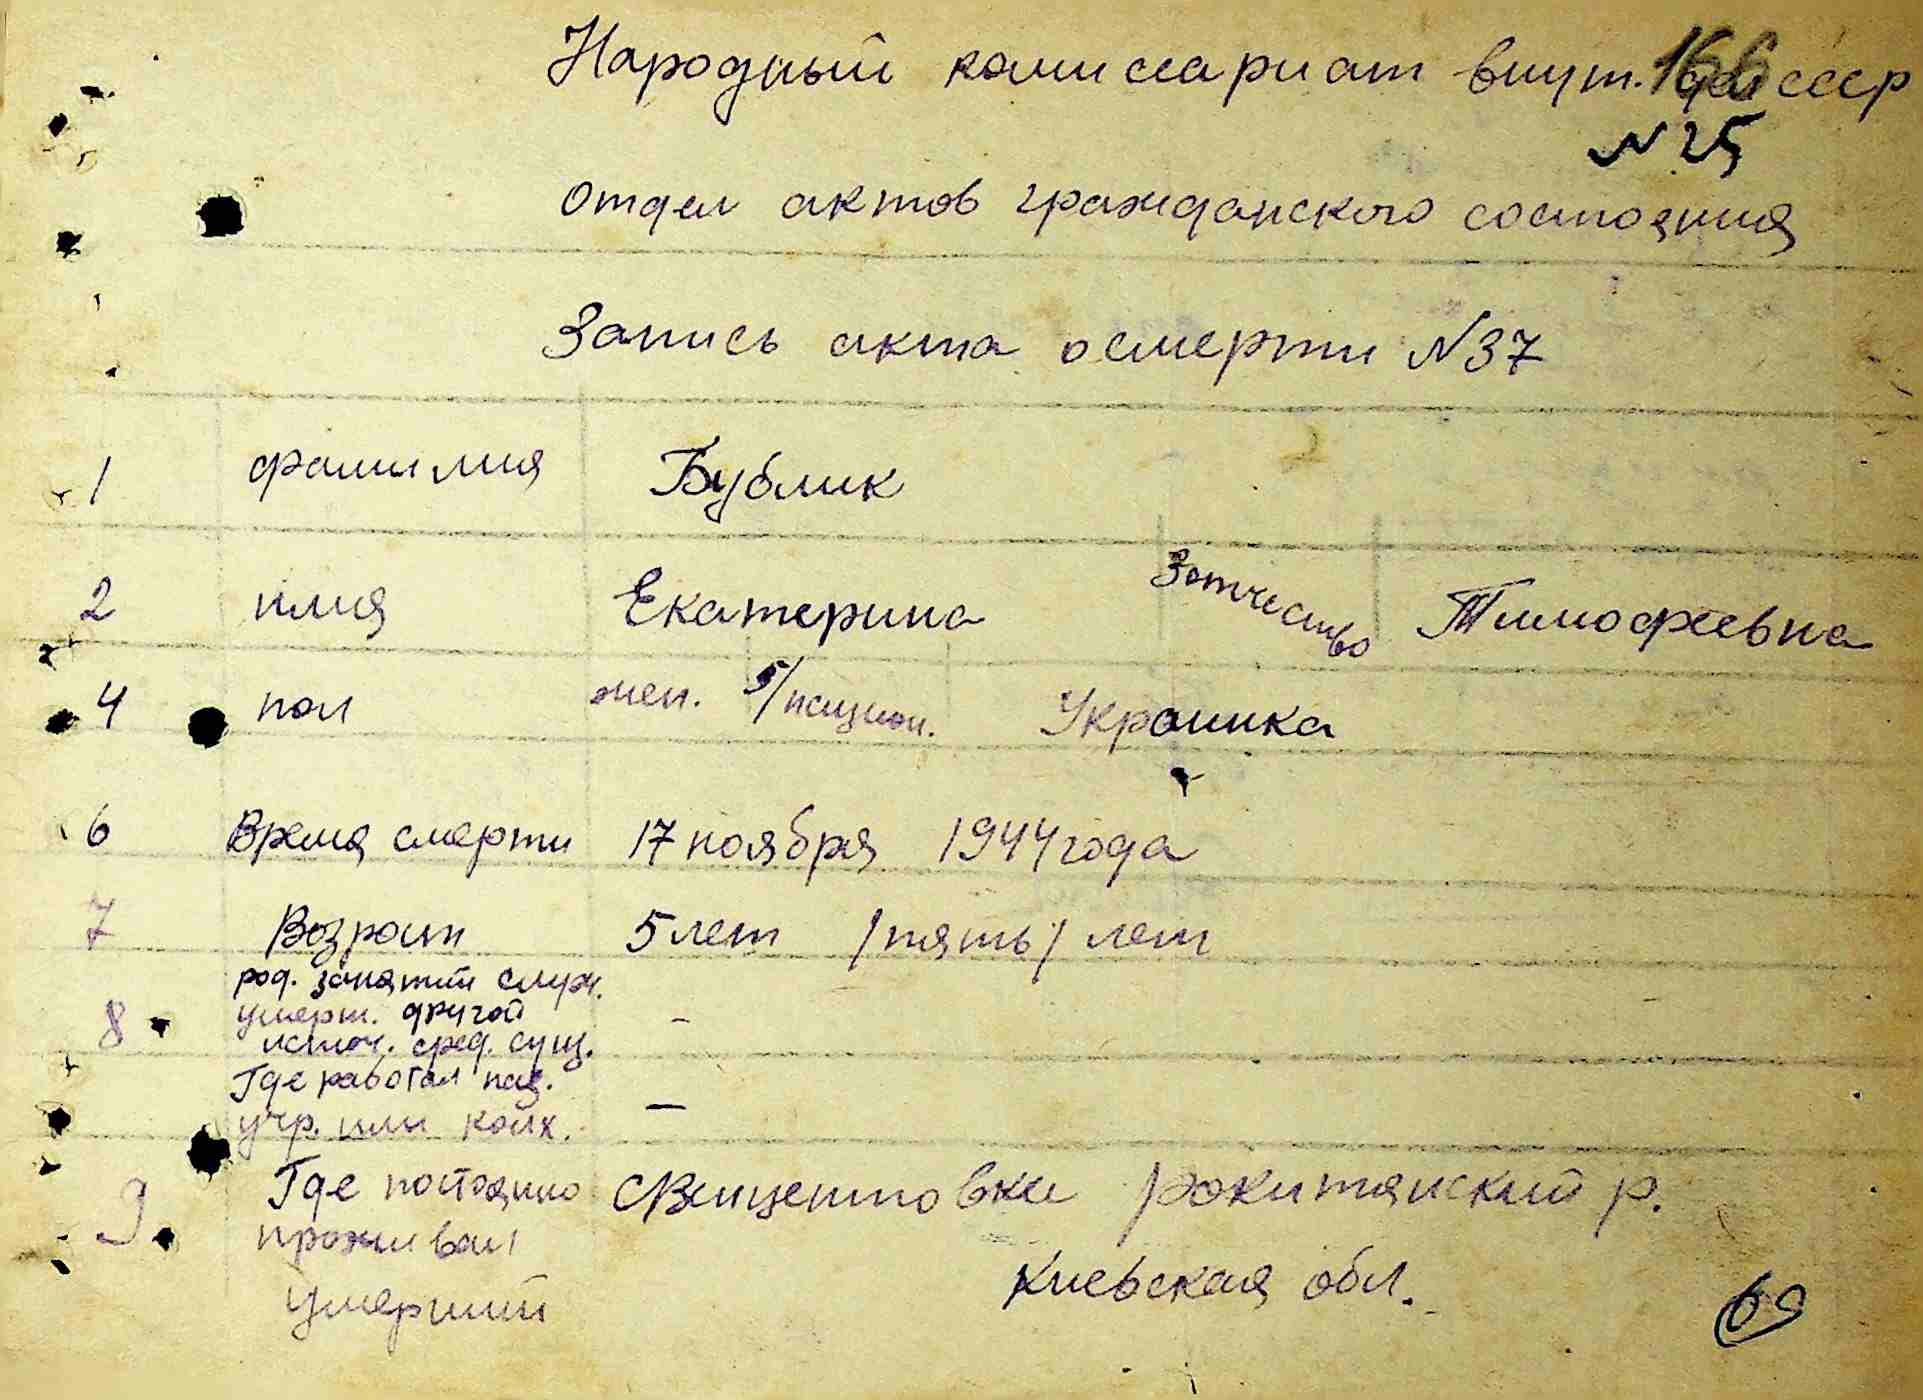 166
Народный комиссариат внут. дел ссср
N 25
отдел актов гражданского состояния
Запись акта о смерти N 37
1 фамилия Бублик
2 имя Екатерина 3 отчество Тимофеевна
4 пол жен. 5/ национ. Украинка
6 Время смерти 17 ноября 1944 года
7 Возраст 5 лет /пять/ лет
род. занятий служ.
8 умерш. другой –
источ. сред. сущ.
Где работал наз.
учр. или колх. –
9 Где постоянно Свищетовка рокитянский р.
проживал Киевская обл.
умерший
69